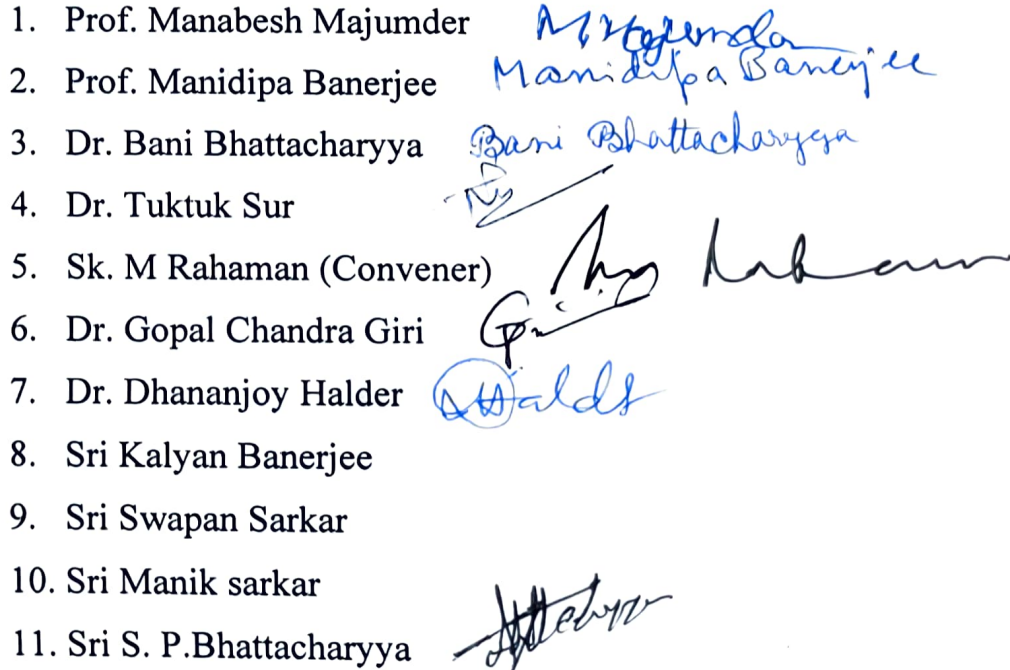 1. Prof. Manabesh Majumder
2. Prof. Manidipa Banerjee Manidipa Banerjee
3. Dr. Bani Bhattacharyya Bani Bhattacharyya
4. Dr. Tuktuk Sur
5. Sk. M Rahaman (Convener)
6. Dr. Gopal Chandra Giri
7. Dr. Dhananjoy Halder
8. Sri Kalyan Banerjee
9. Sri Swapan Sarkar
10. Sri Manik sarkar
11. Sri S. P.Bhattacharyya